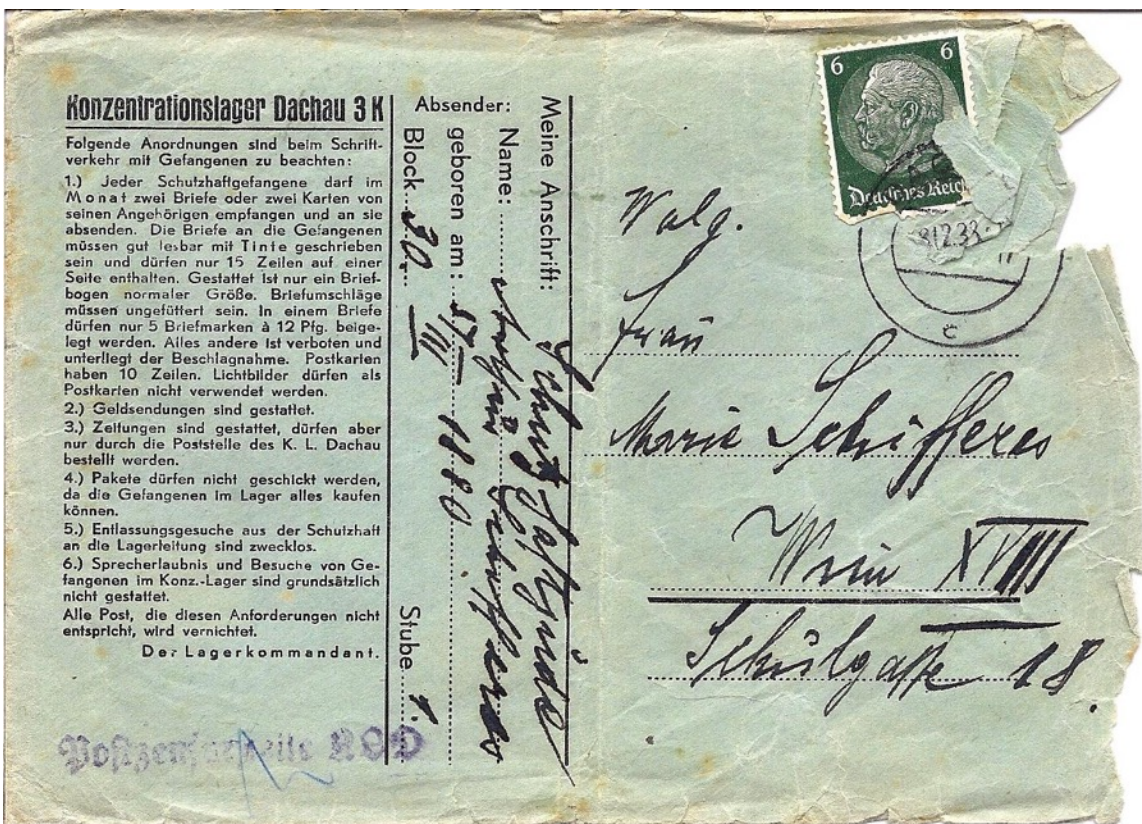 Konzentrationslager Dachau 3 K
Folgende Anordnungen sind beim Schrift-
verkehr mit Gefangenen zu beachten:
1.) Jeder Schutzhaftgefangene darf im
Monat zwei Briefe oder zwei Karten von
seinen Angehörigen empfangen und an sie
absenden. Die Briefe an die Gefangenen
müssen gut lesbar mit Tinte geschrieben
sein und dürfen nur 15 Zeilen auf einer
Seite enthalten. Gestattet ist nur ein Brief-
bogen normaler Größe. Briefumschläge
müssen ungefüttert sein. In einem Briefe
dürfen nur 5 Briefmarken à 12 Pfg. beige-
legt werden. Alles andere ist verboten und
unterliegt der Beschlagnahme. Postkarten
haben 10 Zeilen. Lichtbilder dürfen als
Postkarten nicht verwendet werden.
2.) Geldsendungen sind gestattet.
3.) Zeitungen sind gestattet, dürfen aber
nur durch die Poststelle des K. L. Dachau
bestellt werden.
4.) Pakete dürfen nicht geschickt werden,
da die Gefangenen im Lager alles kaufen
können.
5.) Entlassungsgesuche aus der Schutzhaft
an die Lagerleitung sind zwecklos.
6.) Sprecherlaubnis und Besuche von Ge-
fangenen im Konz.-Lager sind grundsätzlich
nicht gestattet.
Alle Post, die diesen Anforderungen nicht
entspricht, wird vernichtet.
Der Lagerkommandant.
Postzensurstelle
Absender:
Meine Anschrift:
Schutzhaftjude
Name: Schifferes
geboren am: 1880
Block 30 Stube 1.
6 6
Deutsches Reich
c
Frau
Marie Schifferes
Wien XVIII
Schulgasse 18